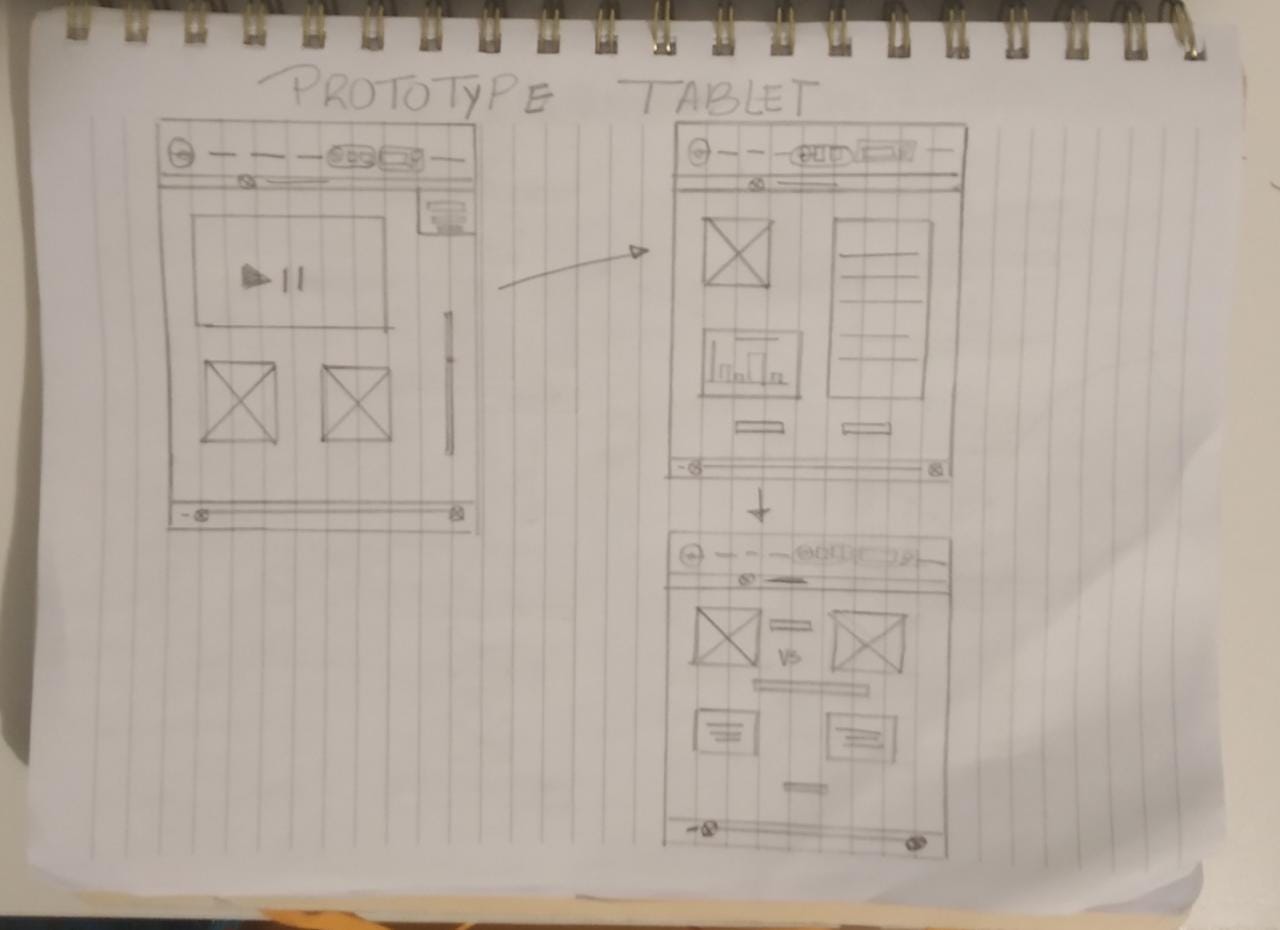 PROTOTYPE TABLET
VS